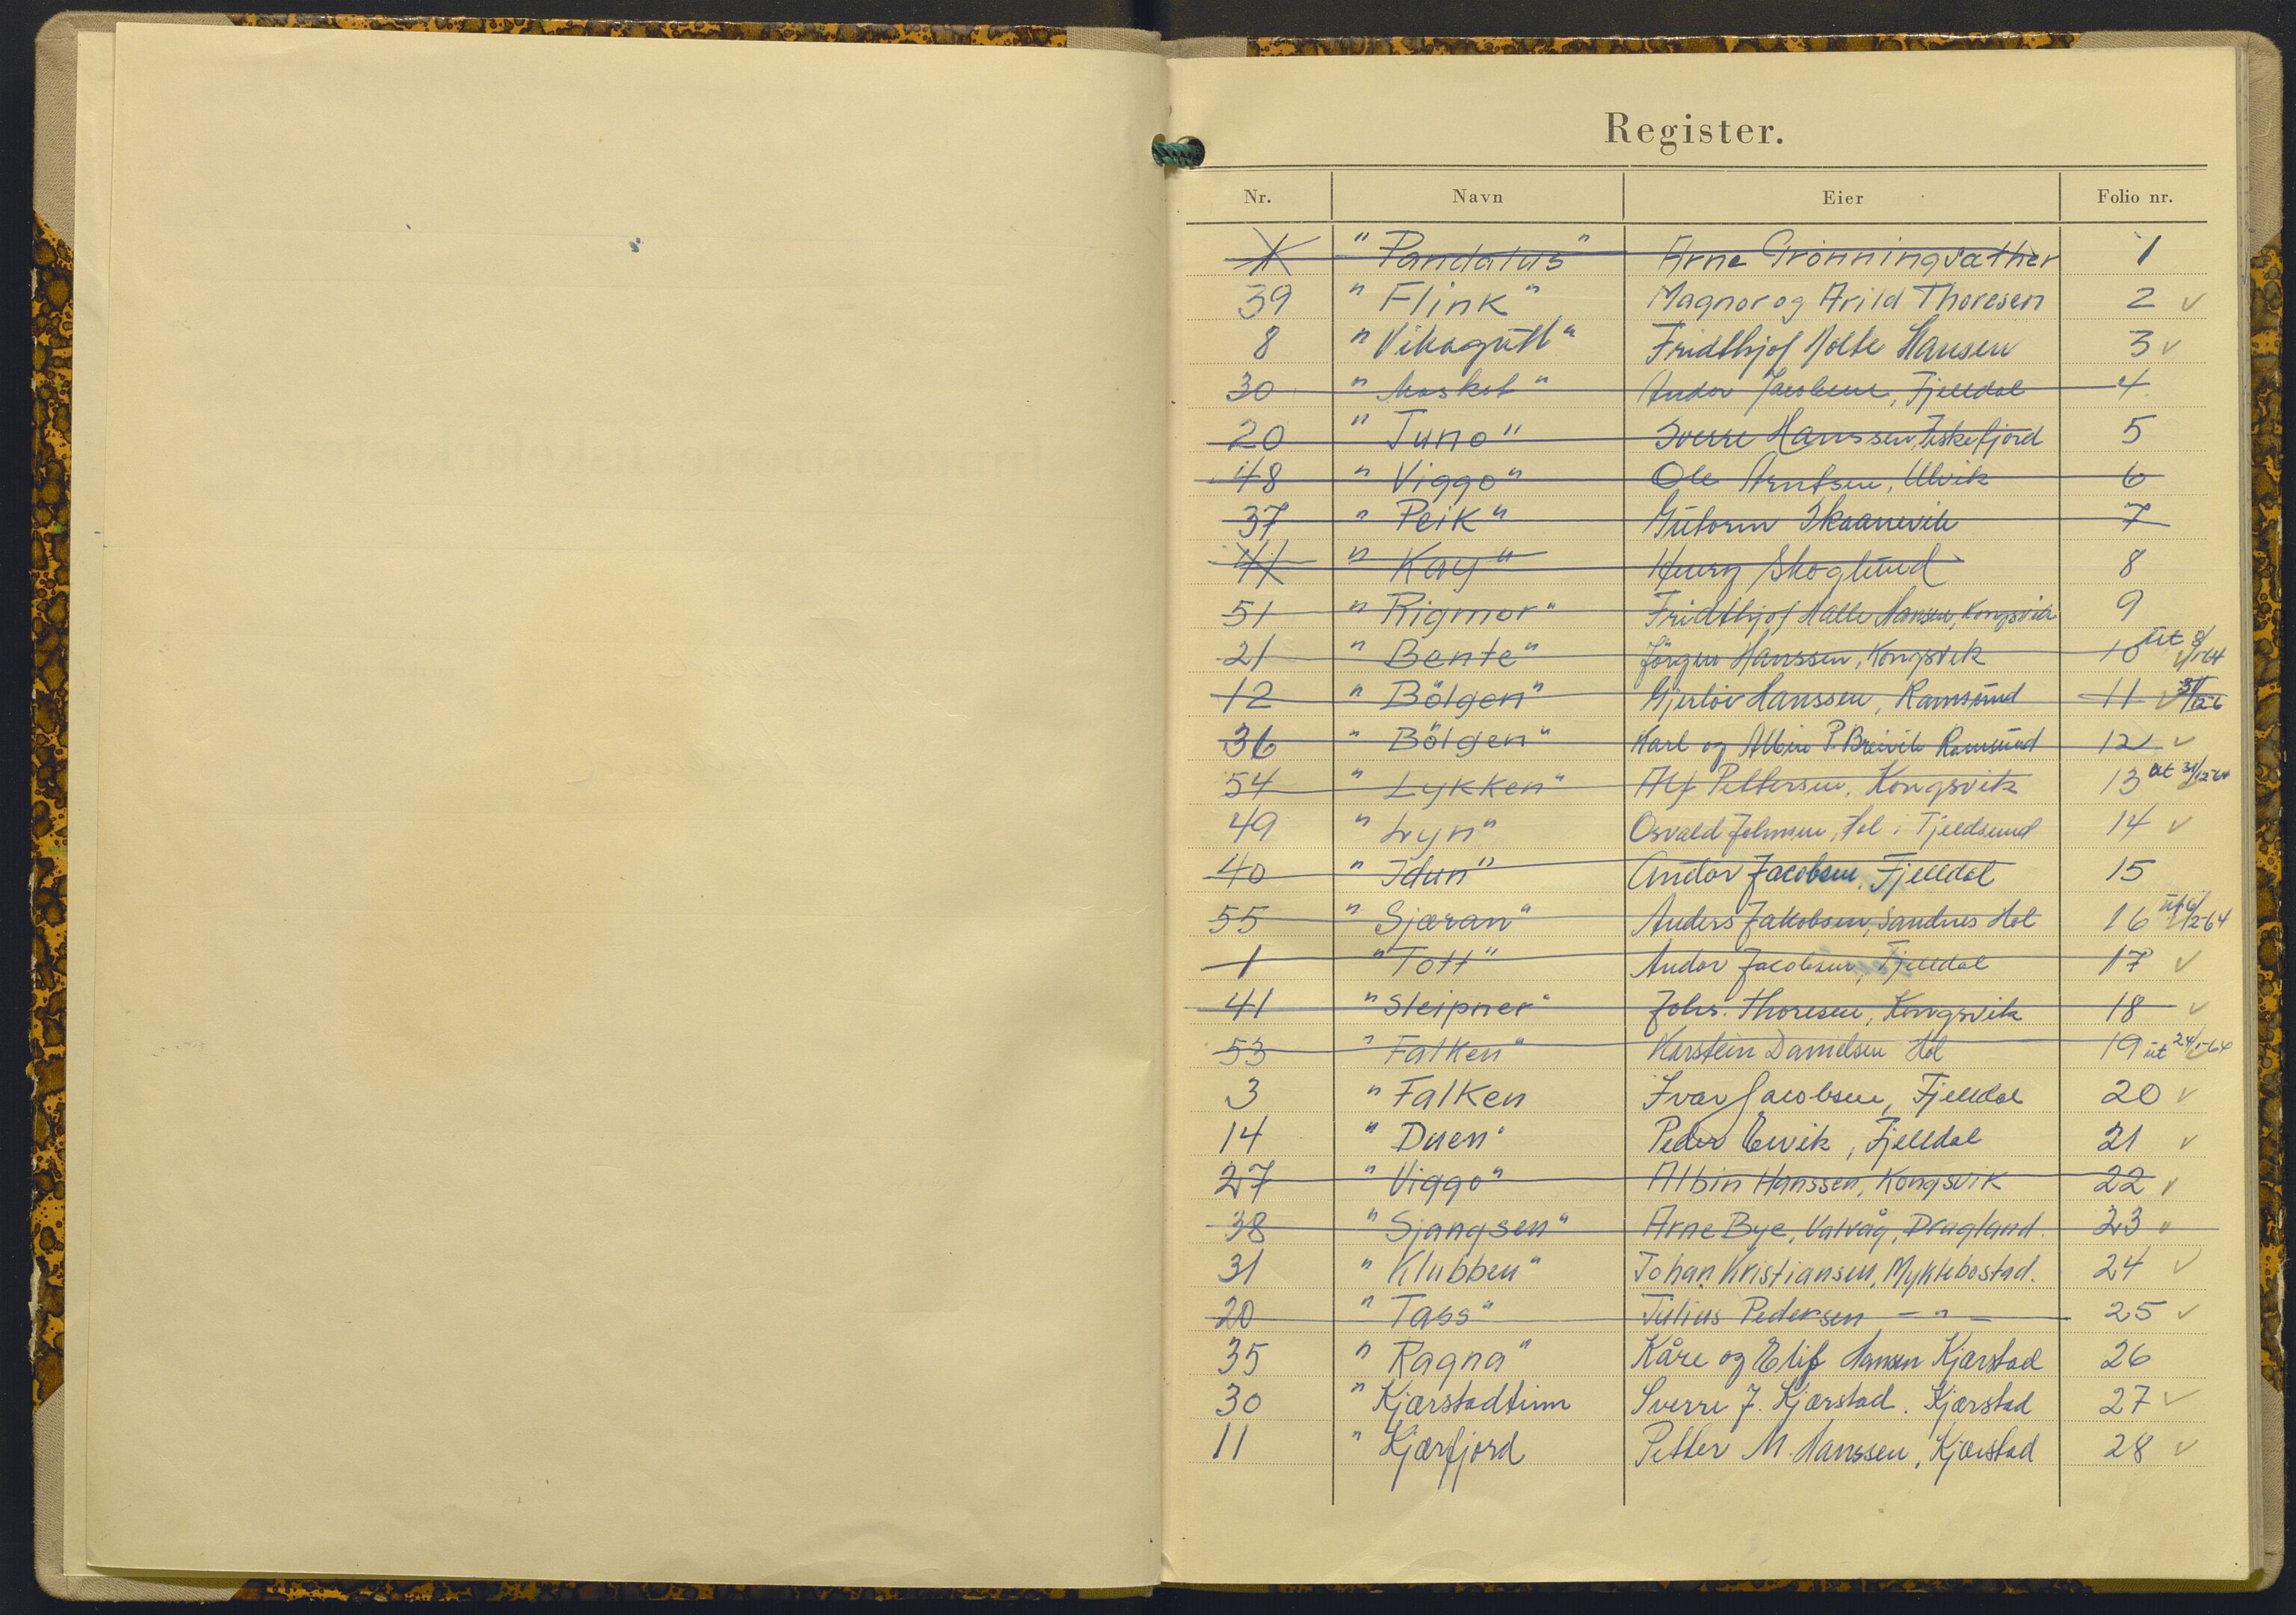 Register.
Nr. Navn Eier Folio nr.
1 "Pandalus" Arne Grönningsæther 1
39 "Flink" Magnor og Arild Thoresen 2 ✓
8 "Vikagutt" Fridthjof Hansen 3 ✓
30 "Maskot" Andor Jacobsen, Fjelldal 4
20 "Juno" Sverre Hanssen, Fiskefjord 5
48 "Viggo" Ole Arntsen, Ulvik 6
37 "Peik" Guttorm Skaanevik 7
41 "Kay" Henry Skoglund 8
51 "Rigmor" Fridthjof Hansen, Kongsvik 9
21 "Bente" Jörgen Hanssen, Kongsvik 10 ut
12 "Bölgen" Hanssen, Ramsund 11 ✓
36 "Bölgen" Karl og Albin P. Breivik Ramsund 12 ✓
54 "Lykken" Alf Pettersen, Kongsvik 13 ut 31/12-64
49 "Lyn" Osvald Johnsen, Hol i Tjeldsund 14 ✓
40 "Idun" Andor Jacobsen, Fjelldal 15
55 "Sjæran" Anders Jakobsen, Sandnes Hol 16 ut
1 "Tott" Andor Jacobsen, Fjelldal 17 ✓
41 "Sleipner" Johs. Thoresen, Kongsvik 18 ✓
53 "Falken" Karstein Danielsen Hol 19 ut
3 "Falken Ivar Jacobsen, Fjelldal 20 ✓
14 "Duen" Peder Ervik, Fjelldal 21 ✓
27 "Viggo" Albin Hanssen, Kongsvik 22 ✓
38 "Sjangsen" Arne Bye, Valvåg, Dragland. 23 ✓
31 "Klubben" Johan Kristiansen, Myklebostad. 24 ✓
20 "Tass" Julius Pedersen — " — 25 ✓
35 "Ragna" Kåre og Hansen Kjærstad 26
30 "Kjærstadtinn Sverre J. Kjærstad. Kjærstad 27 ✓
11 "Kjærfjord Petter M. Hanssen, Kjærstad 28 ✓